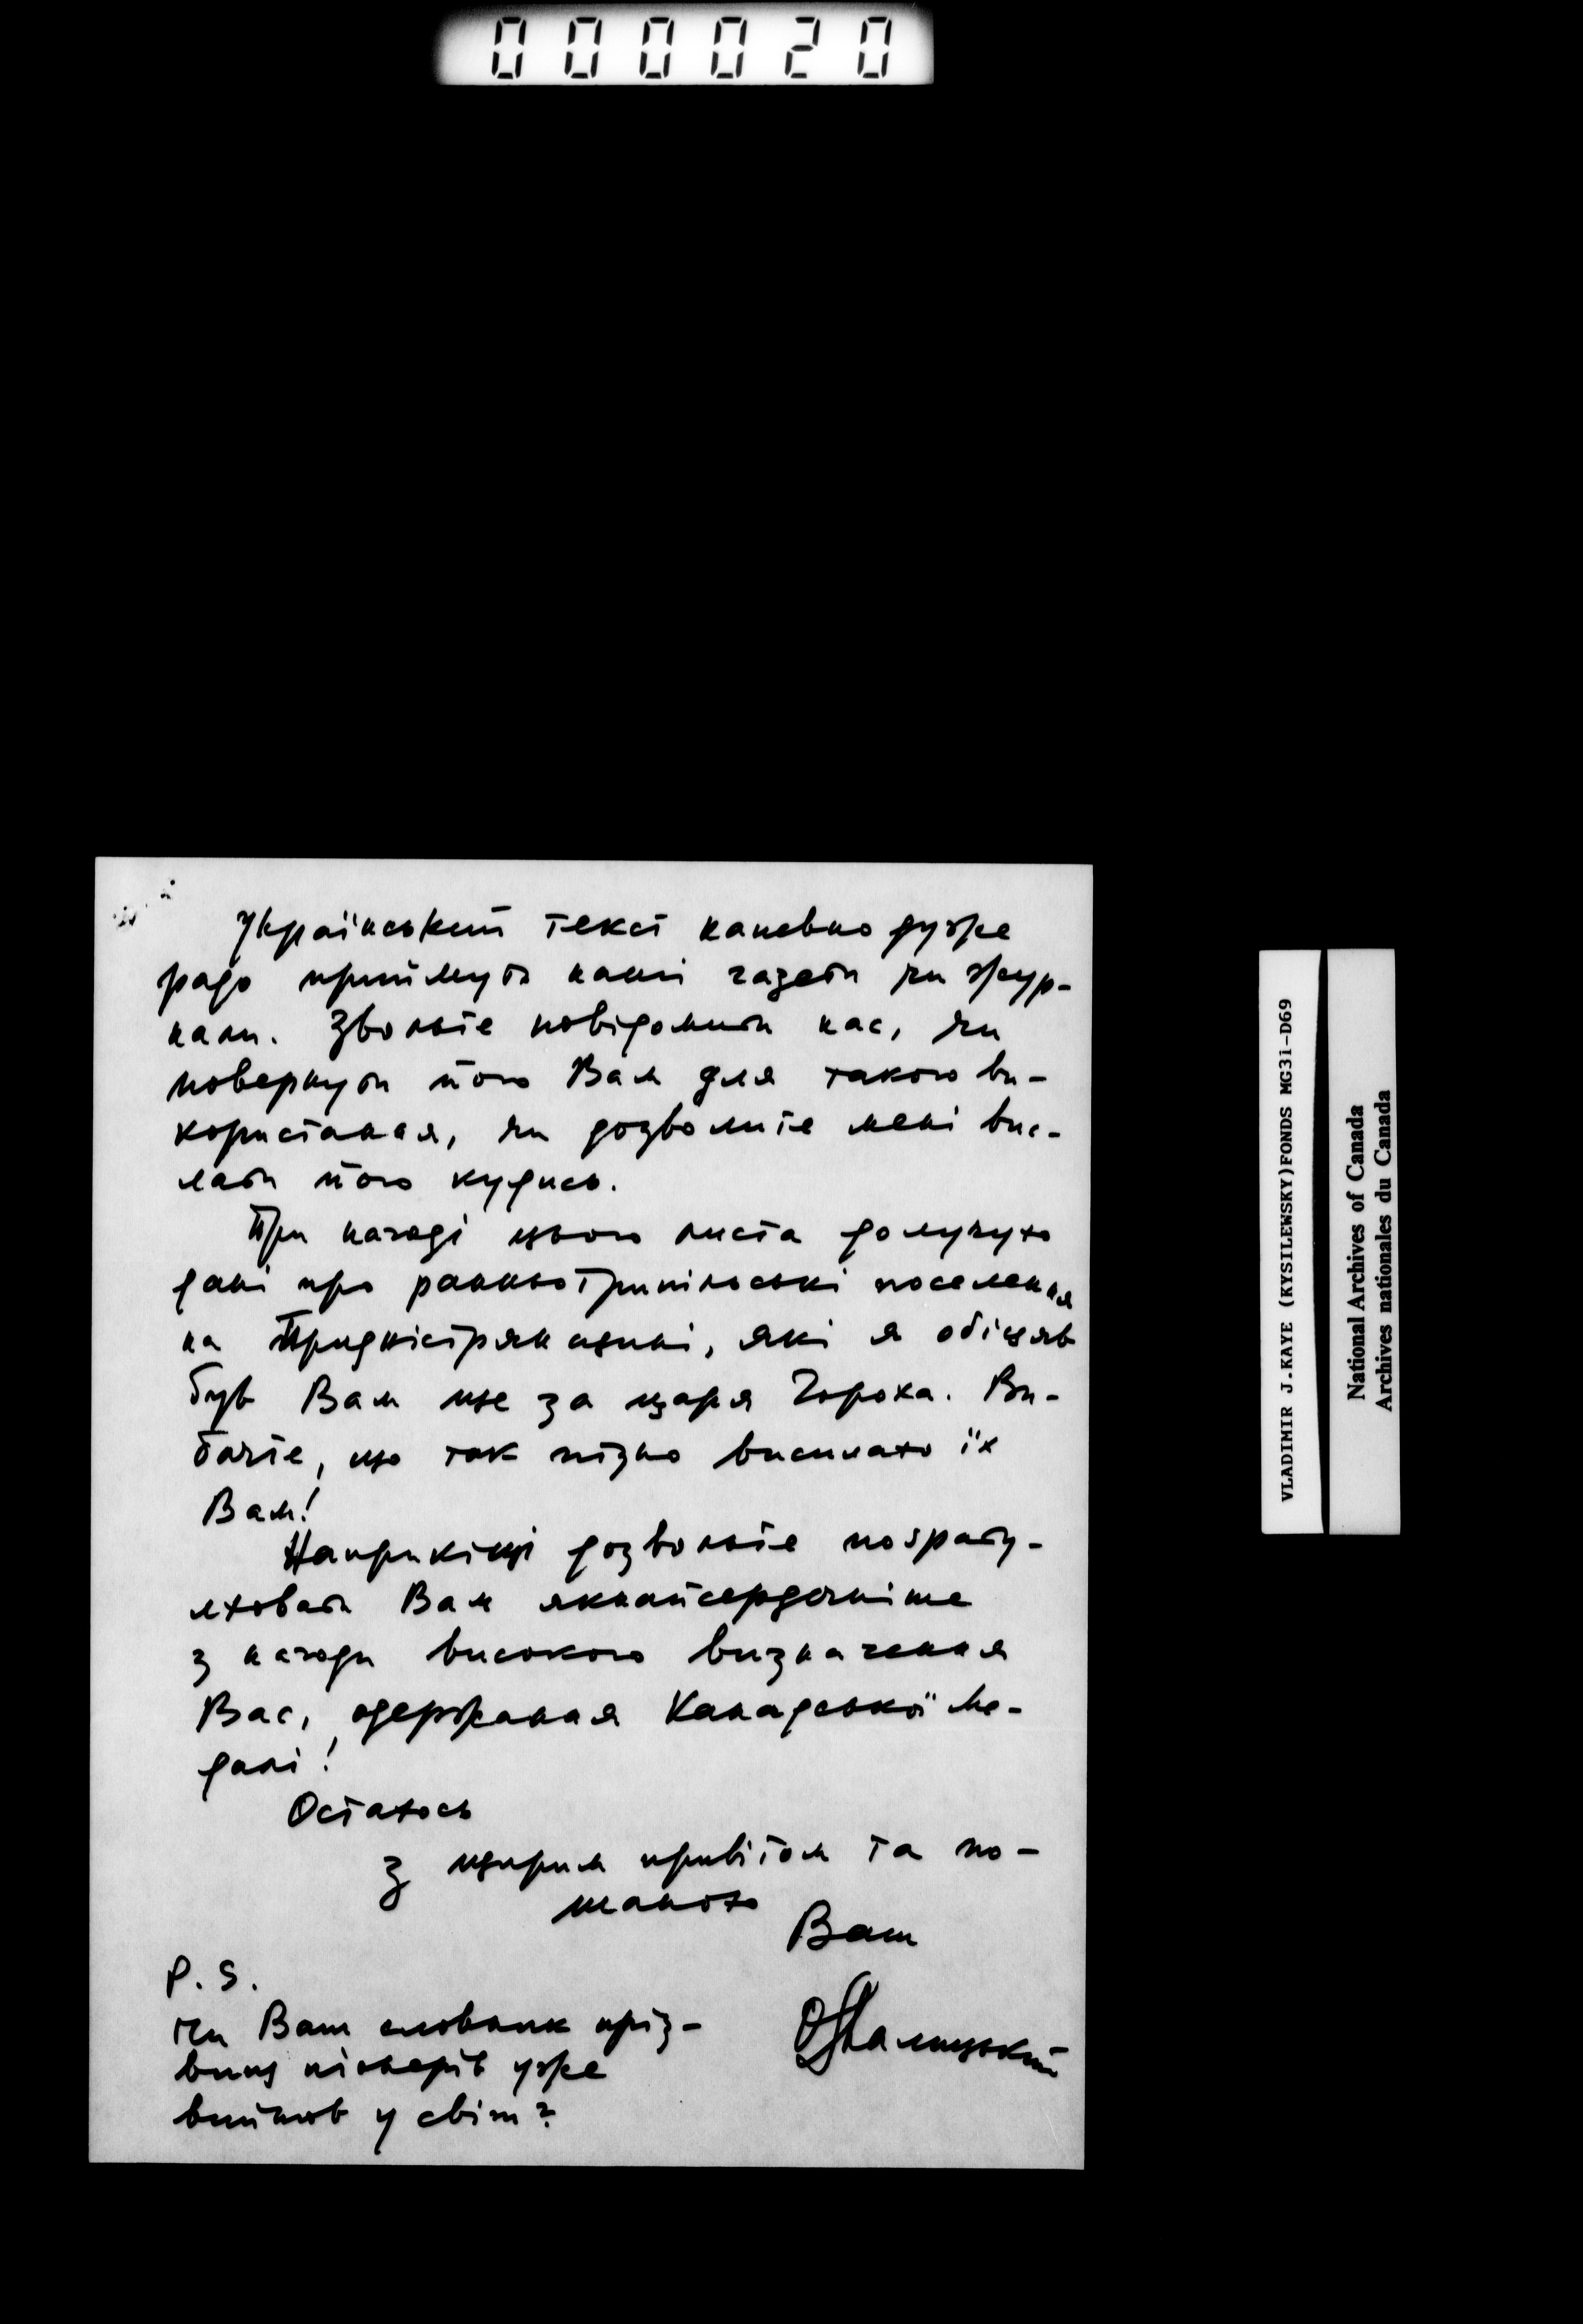 000020
Український текст напевно дуже
радо приймуть наші газети чи жур-
нали. Звольте повідомити нас, чи
повернути його Вам для такого ви-
користання, чи дозволите мені вис-
лати його кудись.
При нагоді цього листа долучую
дані про ранньотрипільські поселення
на Придністрянщині, які я обіцяв
був Вам ще за царя Гороха. Ви-
бачте, що так пізно висилаю їх
Вам!
Наприкінці дозвольте поґрату-
лювати Вам якнайсердечніше
з нагоди високого визначення
Вас, одержання Канадської Ме-
далі!
Остаюсь
з щирим привітом та по-
шаною
Ваш
P.S.
Чи Ваш словник пріз-
вищ піонерів уже
вийшов у світ?
VLADIMIR J.KAYE (KYSILEWSKY)FONDS MG31-D69
National Archives of Canada
Archives nationales du Canada